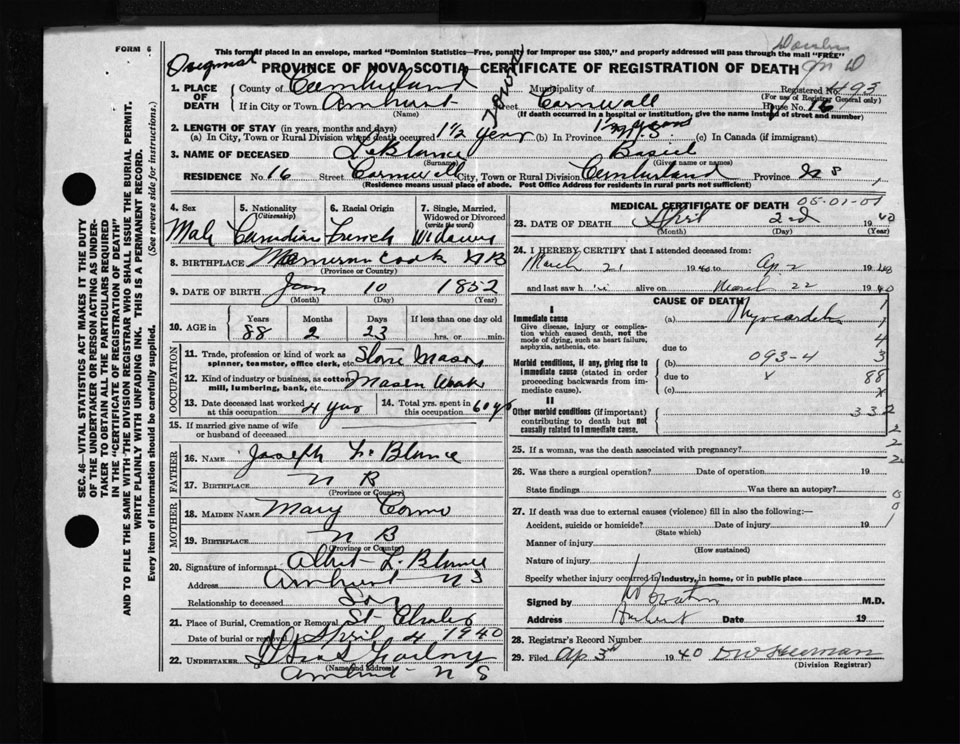 FORM 6
This form if placed in an envelope, marked "Dominion Statistics—Free, penalty for improper use $300," and properly addressed will pass through the mail "FREE"
Original PROVINCE OF NOVA SCOTIA—CERTIFICATE OF REGISTRATION OF DEATH
Registered No. 493
(For use of Registrar General only)
1. PLACE OF DEATH
County of Cumberland Municipality of
If in City or Town Amherst Street Cornwall House No. 16
(Name) (If death occurred in a hospital or institution, give the name instead of street and number)
2. LENGTH OF STAY (in years, months and days)
(a) In City, Town or Rural Division where death occurred 1 1/2 Year (b) In Province (c) In Canada (if immigrant)
3. NAME OF DECEASED LeBlance Basil
(Surname) (Given name or names)
RESIDENCE No. 16 Street Cornwall City, Town or Rural Division Cumberland Province N S
(Residence means usual place of abode. Post Office Address for residents in rural parts not sufficient)
SEC. 46—VITAL STATISTICS ACT MAKES IT THE DUTY
OF THE UNDERTAKER OR PERSON ACTING AS UNDER-
TAKER TO OBTAIN ALL THE PARTICULARS REQUIRED
IN THE "CERTIFICATE OF REGISTRATION OF DEATH"
AND TO FILE THE SAME WITH THE DIVISION REGISTRAR WHO SHALL ISSUE THE BURIAL PERMIT.
WRITE PLAINLY WITH UNFADING INK. THIS IS A PERMANENT RECORD.
Every item of information should be carefully supplied. (See reverse side for instructions.)
4. Sex 5. Nationality (Citizenship) 6. Racial Origin 7. Single, Married, Widowed or Divorced (write the word)
Male Canadian French Widower
8. BIRTHPLACE Memramcook N B
(Province or Country)
9. DATE OF BIRTH Jan 10 1852
(Month) (Day) (Year)
10. AGE in Years Months Days If less than one day old
88 2 23 hrs. or min.
OCCUPATION
11. Trade, profession or kind of work as spinner, teamster, office clerk, etc. Stone Mason
12. Kind of industry or business, as cotton mill, lumbering, bank, etc. Mason Work
13. Date deceased last worked at this occupation 4 yrs 14. Total yrs. spent in this occupation 60 yrs
15. If married give name of wife or husband of deceased
FATHER
16. Name Joseph LeBlance
17. Birthplace N B
(Province or Country)
MOTHER
18. Maiden Name Mary
19. Birthplace N B
(Province or Country)
20. Signature of informant Albert LeBlance
Address Amherst N S
Relationship to deceased Son
21. Place of Burial, Cremation or Removal St Charles
Date of burial or removal April 4 1940
22. UNDERTAKER
(Name and address)
Amherst N S
MEDICAL CERTIFICATE OF DEATH
05-01-01
23. DATE OF DEATH April 2nd 1940
(Month) (Day) (Year)
24. I HEREBY CERTIFY that I attended deceased from:
March 21 1940 to Ap 2 1940
and last saw h im alive on March 22 1940
CAUSE OF DEATH
I
Immediate cause (a) Myocarditis
Give disease, injury or complication which caused death, not the mode of dying, such as heart failure, asphyxia, asthenia, etc.
due to
Morbid conditions, if any, giving rise to immediate cause (stated in order proceeding backwards from immediate cause). (b) 093-4
due to x
(c)
II
Other morbid conditions (if important) contributing to death but not causally related to immediate cause. 332
1
4
3
88
x
2
2
2
0
0
1
25. If a woman, was the death associated with pregnancy?
26. Was there a surgical operation? Date of operation 19
State findings Was there an autopsy?
27. If death was due to external causes (violence) fill in also the following:—
Accident, suicide or homicide? Date of injury 19
(State which)
Manner of injury
(How sustained)
Nature of injury
Specify whether injury occurred in industry, in home, or in public place
Signed by M.D.
Address Amherst Date 19
28. Registrar's Record Number
29. Filed Ap 3rd 1940
(Division Registrar)